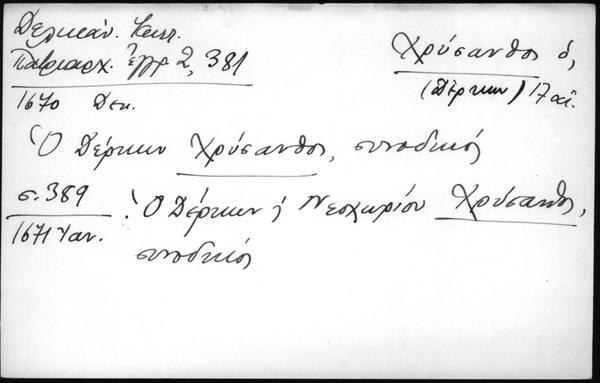 Δελικάν. Καλλ.
Πατριαρχ. ἔγγρ 2, 381
Χρύσανθος ὁ,
(Δέρκων) 17 αἰ.
1670 Δεκ.
Ὁ Δέρκων Χρύσανθος, συνοδικός
σ. 389
Ὁ Δέρκων ἡ Νεοχωρίου Χρύσανθος,
1671 Ιαν.
συνοδικός